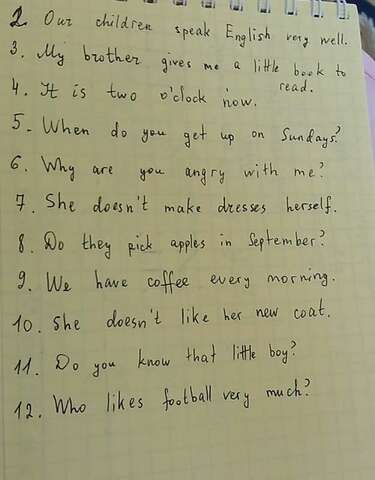 2. Our children speak English very well.
3. My brother gives me a little book to
read.
4. It is two o'clock now.
5. When do you get up on Sundays?
6. Why are you angry with me?
7. She doesn't make dresses herself.
8. Do they pick apples in September?
9. We have coffee every morning.
10. She doesn't like her new coat.
11. Do you know that little boy?
12. Who likes football very much?